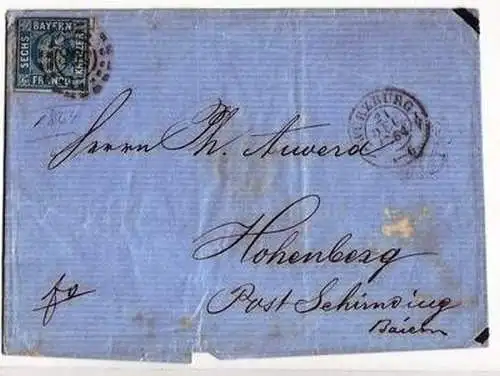 BAYERN
SECHS
KREUZER
FRANCO
1864
WÜRZBURG
21
64
Herrn Th. Auwera
Hohenberg
fo
Post Schirnding
Baiern